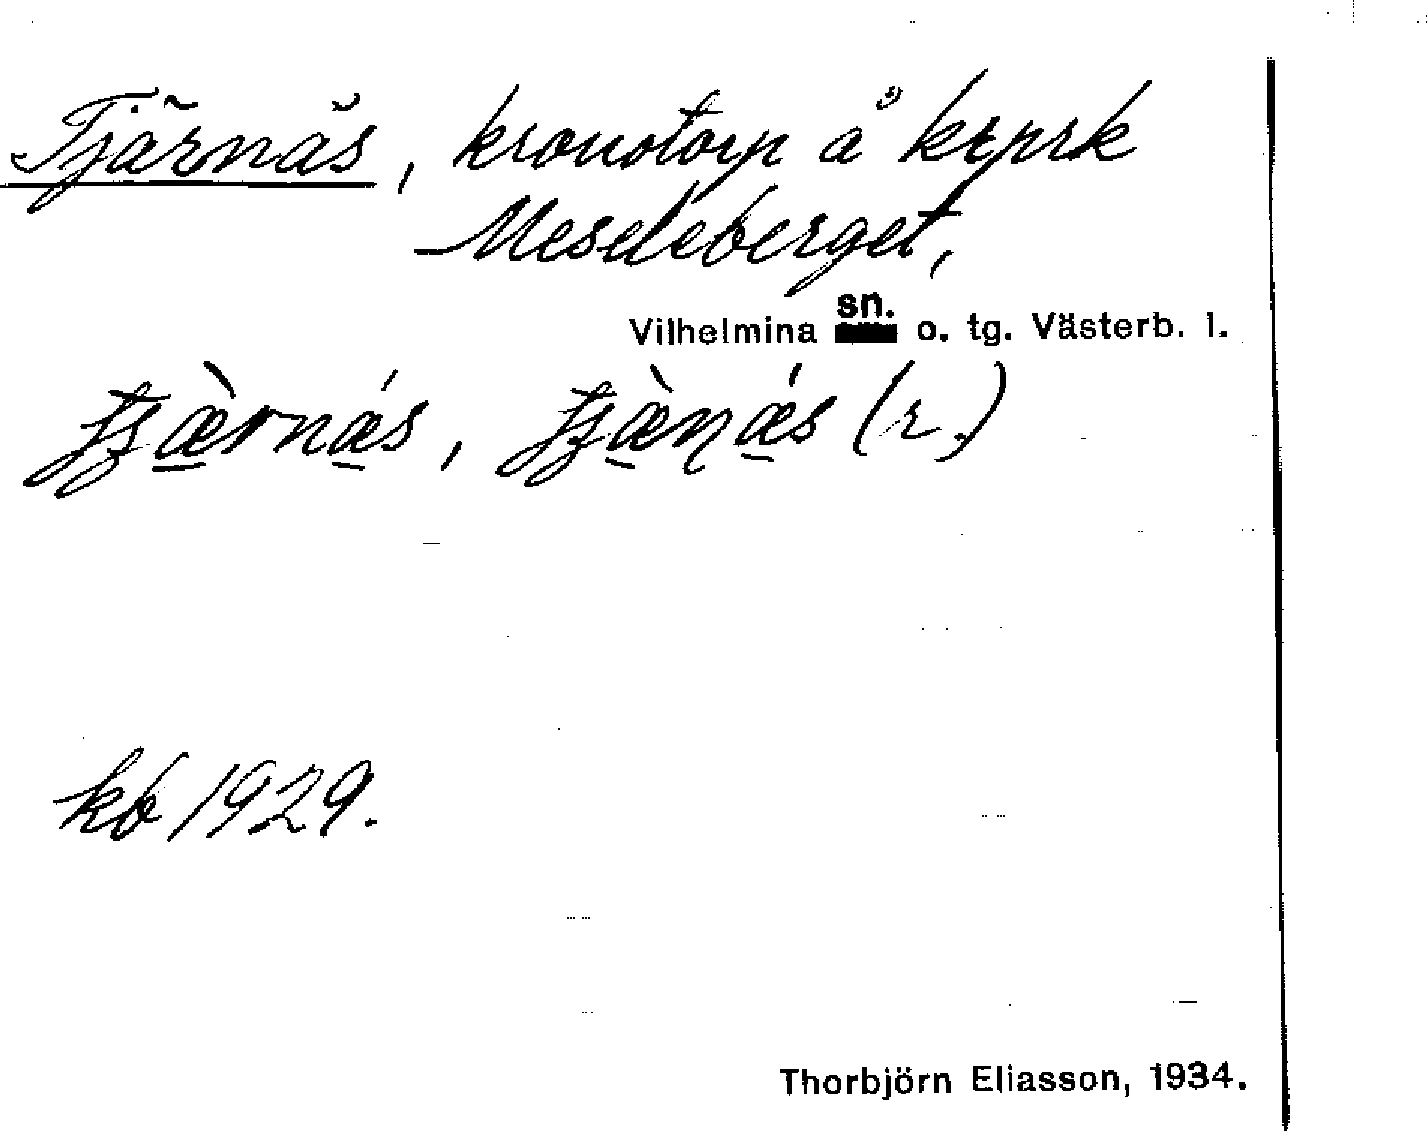 Tjärnäs, kronotorp å krprk
Meseleberget,
Vilhelmina sn. o. tg. Västerb. l.
tjæ̀rnǽs, tjæ̀ṇǽs (r.)
kb 1929.
Thorbjörn Eliasson, 1934.